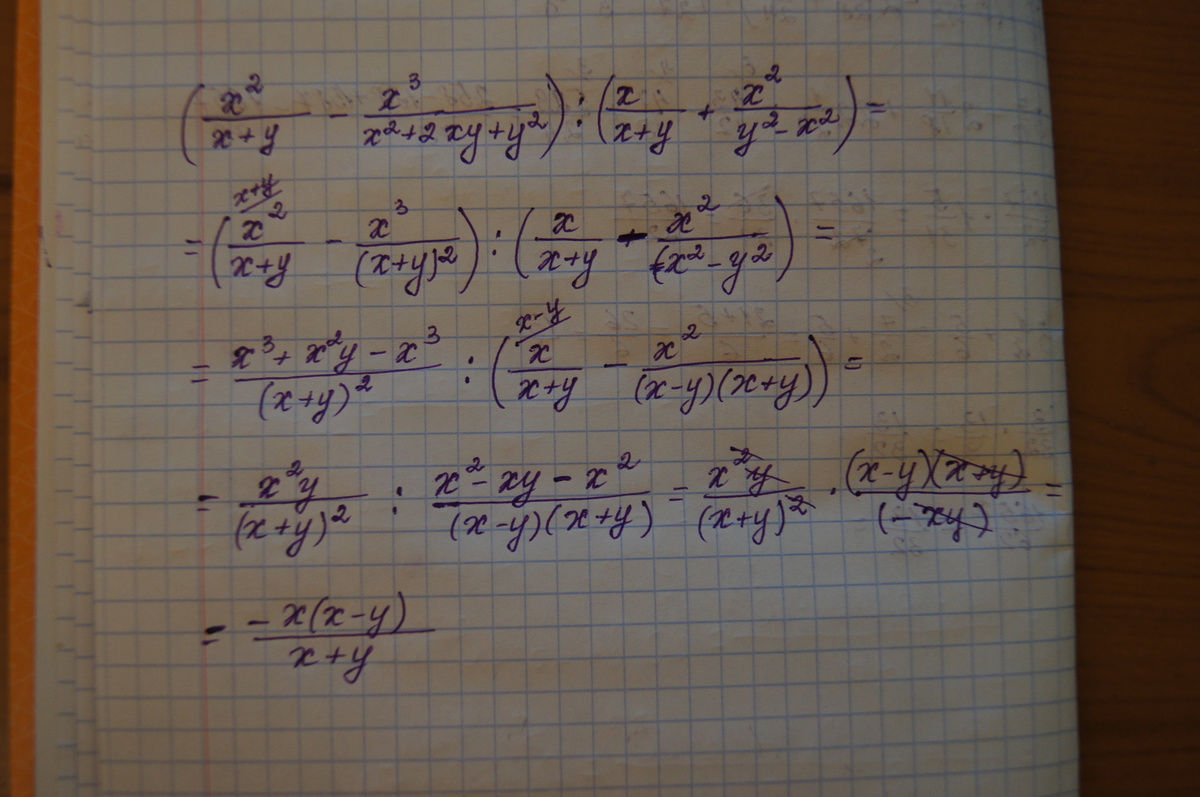 (x²/(x+y) - x³/(x²+2xy+y²)) : (x/(x+y) + x²/(y²-x²)) =
= (x²/(x+y) - x³/(x+y)²) : (x/(x+y) - x²/(x²-y²)) =
x+y
= (x³+x²y-x³)/(x+y)² : (x/(x+y) - x²/((x-y)(x+y))) =
x-y
= x²y/(x+y)² : (x²-xy-x²)/((x-y)(x+y)) = x²y/(x+y)² · (x-y)(x+y)/(-xy) =
= -x(x-y)/(x+y)